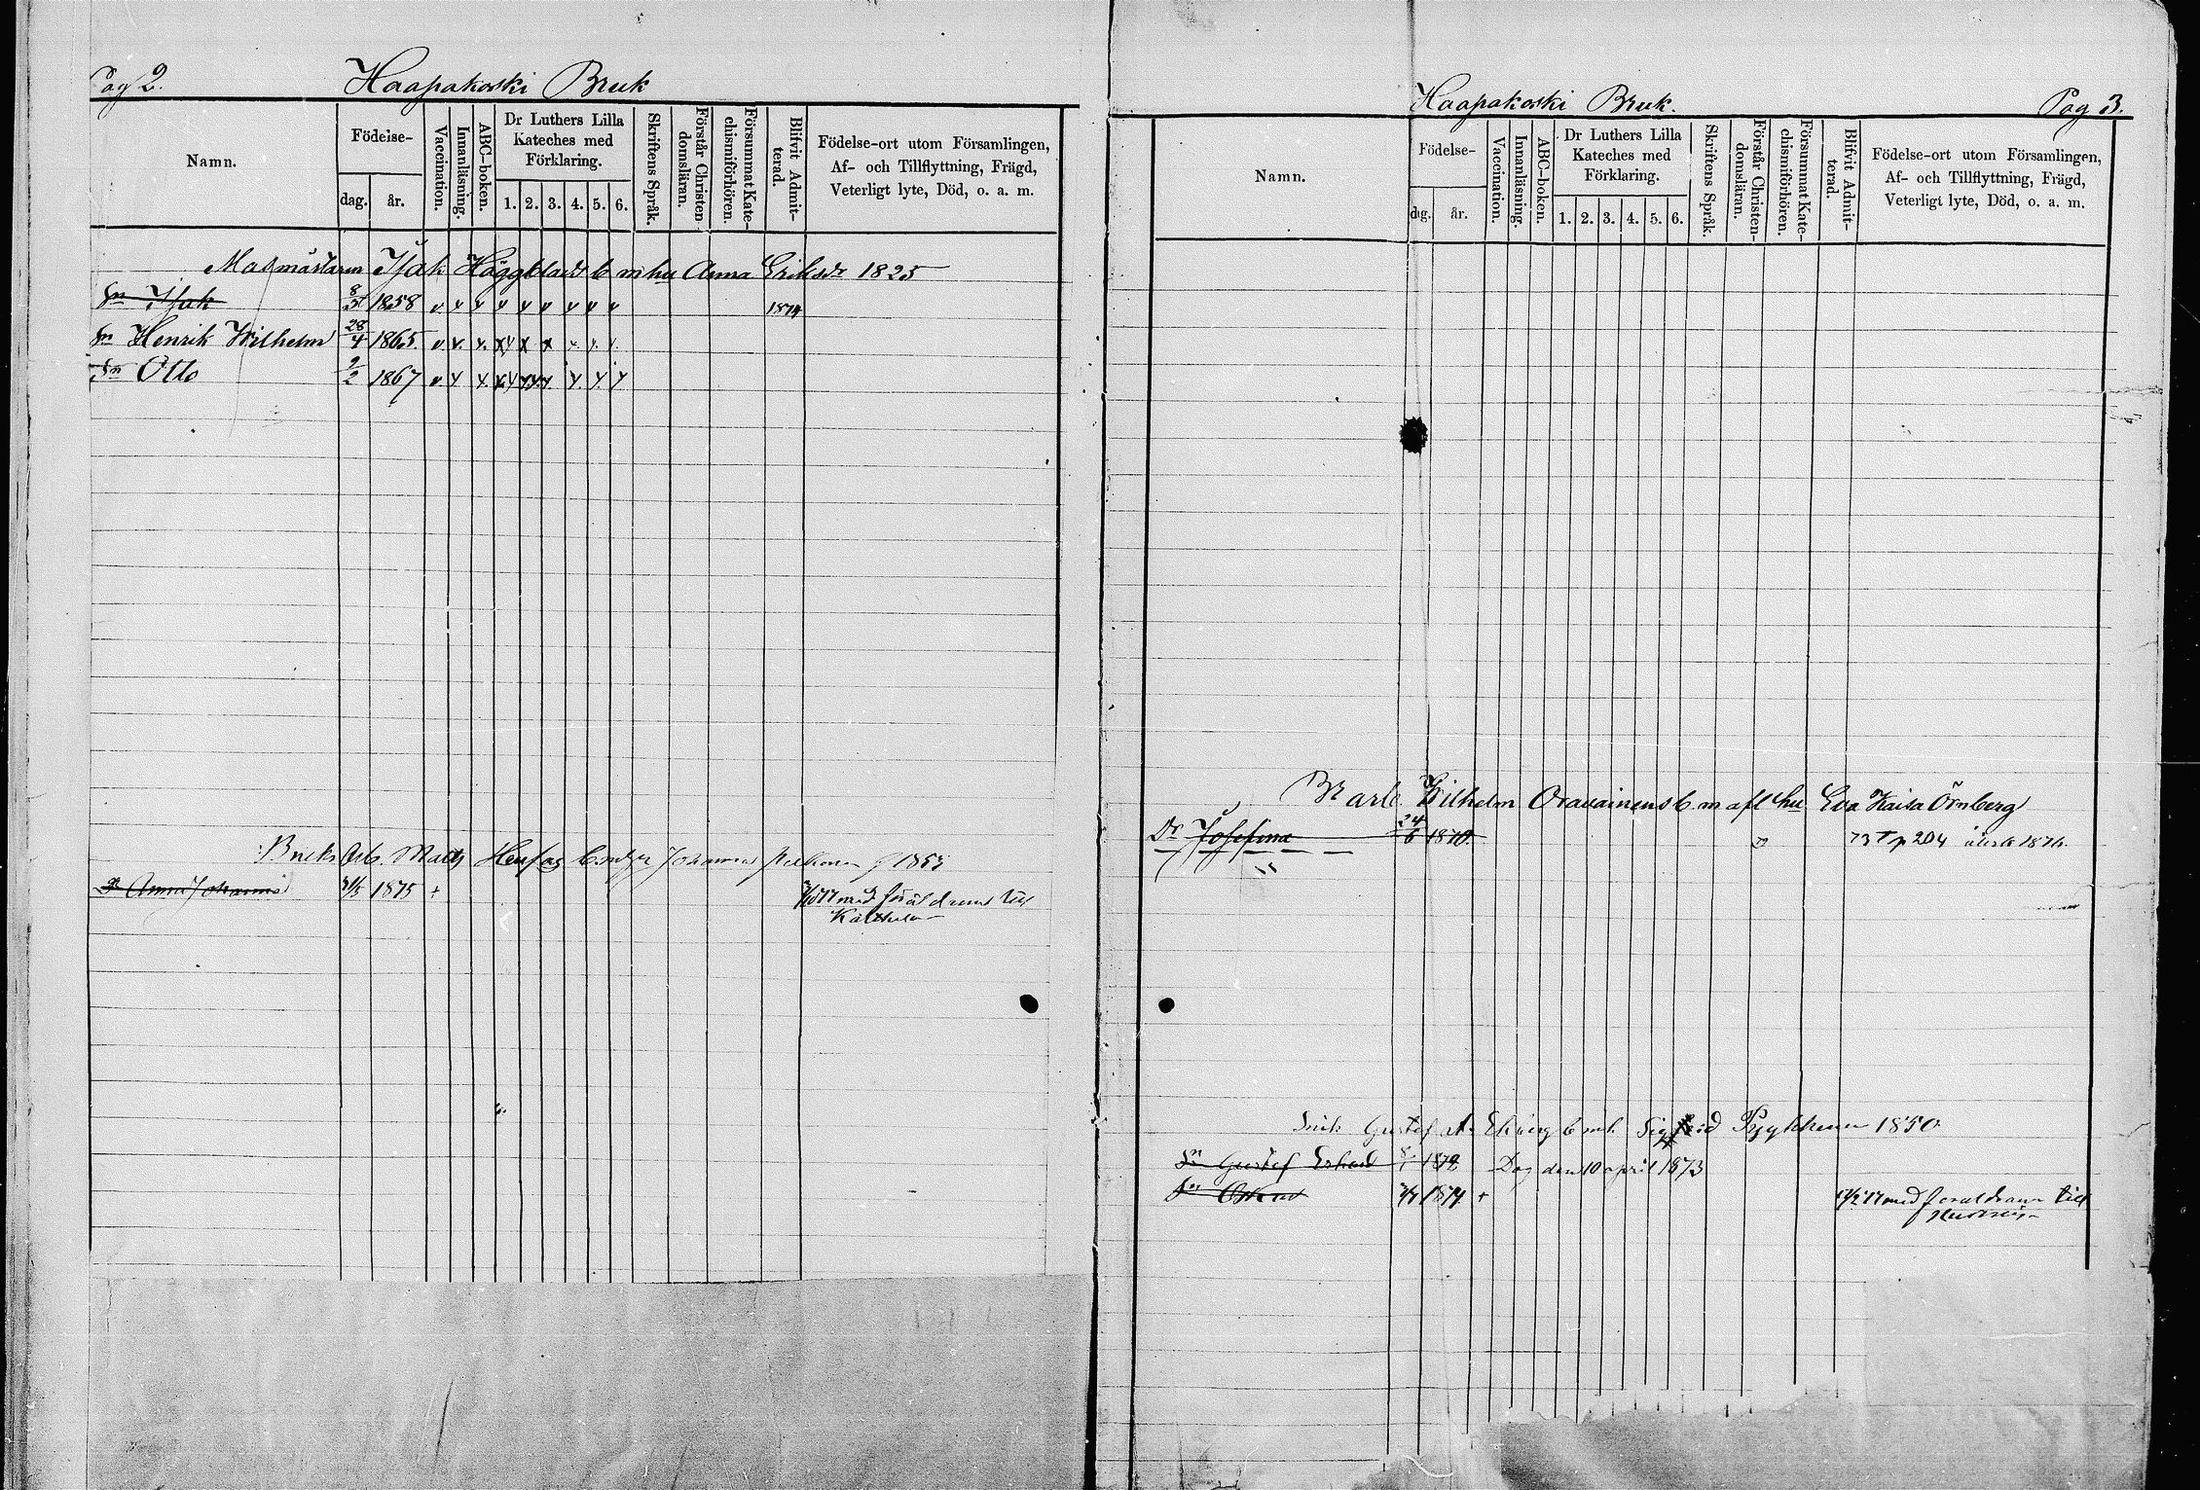 Pag 2. Haapakoski Bruk
Namn.
Födelse-
dag. år.
Vaccination.
Innanläsning.
ABC-boken.
Dr Luthers Lilla
Kateches med
Förklaring.
1. 2. 3. 4. 5. 6.
Skriftens Språk.
Förstår Christen-
domsläran.
Försummat Kate-
chismiförhören.
Blifvit Admit-
terad.
Födelse-ort utom Församlingen,
Af- och Tillflyttning, Frägd,
Veterligt lyte, Död, o. a. m.
Masmästaren Isak Häggblads b m hu Anna Eriksdr 1825
Sn Isak 8/5 1858 v v v v v v v v v 1874
Sn Henrik Wilhelm 28/4 1865
Sn Otto 2/2 1867
Bruks Arb. Matts Johanna 1853
Dr Anna Johanna 1875 +
med föräldrarne till
Haapakoski Bruk. Pag 3.
Namn.
Födelse-
dag. år.
Vaccination.
Innanläsning.
ABC-boken.
Dr Luthers Lilla
Kateches med
Förklaring.
1. 2. 3. 4. 5. 6.
Skriftens Språk.
Förstår Christen-
domsläran.
Försummat Kate-
chismiförhören.
Blifvit Admit-
terad.
Födelse-ort utom Församlingen,
Af- och Tillflyttning, Frägd,
Veterligt lyte, Död, o. a. m.
Br arb. Wilhelm Oravainens b m afl hu Eva Kaisa Örnberg
Dr Josefina 24/6 1870. 73 T p 204 1876.
Gustaf Ekberg b m h Sigfrid Pyykkönen 1850
Sn Gustaf 1872 Dog den 10 april 1873
Sn Oskar 1874 + med föräldrarne till